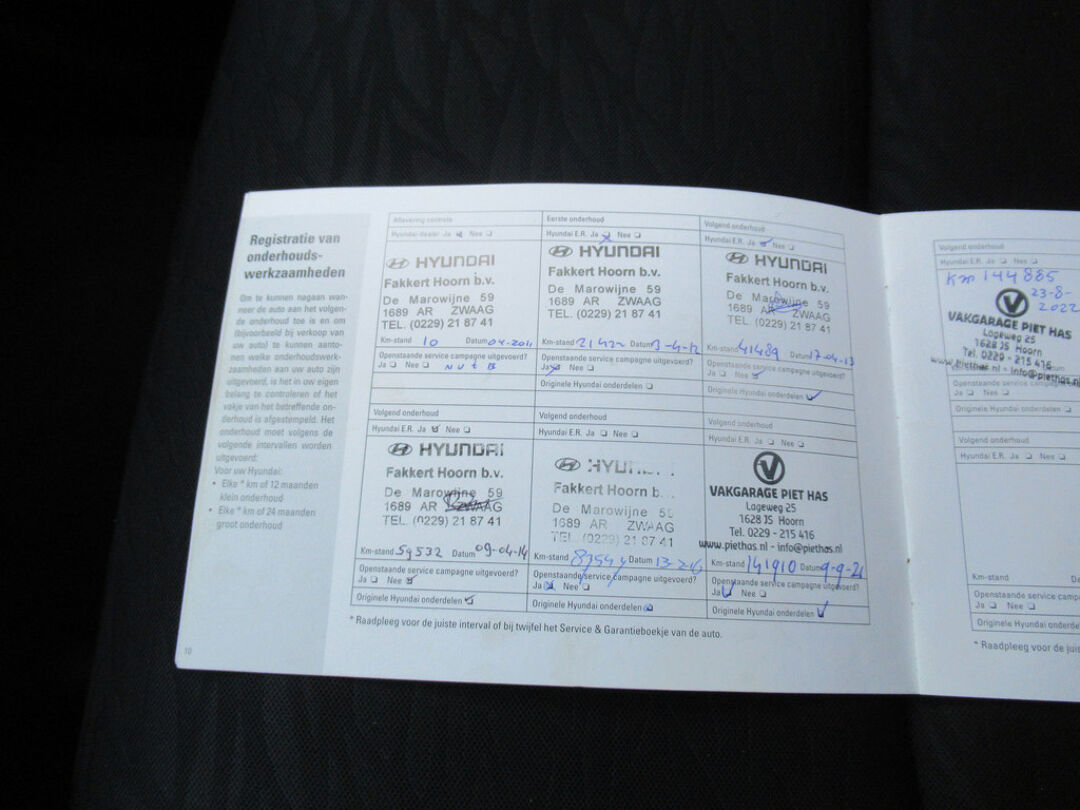 Registratie van
onderhouds-
werkzaamheden
Om te kunnen nagaan wan-
neer de auto aan het volgen-
de onderhoud toe is en om
(bijvoorbeeld bij verkoop van
uw auto) te kunnen aanto-
nen welke onderhoudswerk-
zaamheden aan uw auto zijn
uitgevoerd, is het in uw eigen
belang te controleren of het
vakje van het betreffende on-
derhoud is afgestempeld. Het
onderhoud moet volgens de
volgende intervallen worden
uitgevoerd:
Voor uw Hyundai:
• Elke * km of 12 maanden
klein onderhoud
• Elke * km of 24 maanden
groot onderhoud
10
Aflevering controle
Hyundai-dealer Ja Nee
HYUNDAI
Fakkert Hoorn b.v.
De Marowijne 59
1689 AR ZWAAG
TEL. (0229) 21 87 41
Km-stand 10 Datum 04-2011
Openstaande service campagne uitgevoerd?
Ja Nee
Eerste onderhoud
Hyundai E.R. Ja Nee
HYUNDAI
Fakkert Hoorn b.v.
De Marowijne 59
1689 AR ZWAAG
TEL. (0229) 21 87 41
Km-stand 21422 Datum 3-4-12
Openstaande service campagne uitgevoerd?
Ja Nee
Originele Hyundai onderdelen
Volgend onderhoud
Hyundai E.R. Ja Nee
HYUNDAI
Fakkert Hoorn b.v.
De Marowijne 59
1689 AR ZWAAG
TEL. (0229) 21 87 41
Km-stand 41489 Datum 17-04-13
Openstaande service campagne uitgevoerd?
Ja Nee
Originele Hyundai onderdelen
Volgend onderhoud
Hyundai E.R. Ja Nee
HYUNDAI
Fakkert Hoorn b.v.
De Marowijne 59
1689 AR ZWAAG
TEL. (0229) 21 87 41
Km-stand 59532 Datum 09-04-14
Openstaande service campagne uitgevoerd?
Ja Nee
Originele Hyundai onderdelen
Volgend onderhoud
Hyundai E.R. Ja Nee
HYUNDAI
Fakkert Hoorn b.
De Marowijne 59
1689 AR ZWAAG
TEL. (0229) 21 87 41
Km-stand Datum 13-2-16
Openstaande service campagne uitgevoerd?
Ja Nee
Originele Hyundai onderdelen
Volgend onderhoud
Hyundai E.R. Ja Nee
VAKGARAGE PIET HAS
Lageweg 25
1628 JS Hoorn
Tel. 0229 - 215 416
www.piethas.nl - info@piethas.nl
Km-stand 141910 Datum 9-9-21
Openstaande service campagne uitgevoerd?
Ja Nee
Originele Hyundai onderdelen
* Raadpleeg voor de juiste interval of bij twijfel het Service & Garantieboekje van de auto.
Volgend onderhoud
Hyundai E.R. Ja Nee
Km 144885
23-8-
2022
VAKGARAGE PIET HAS
Lageweg 25
1628 JS Hoorn
Tel. 0229 - 215 416
www.piethas.nl - info@piethas.nl
Openstaande service campagne
Ja Nee
Originele Hyundai onderdelen
Volgend onderhoud
Hyundai E.R. Ja Nee
Km-stand
Openstaande service campa
Ja Nee
Originele Hyundai onderde
* Raadpleeg voor de juis